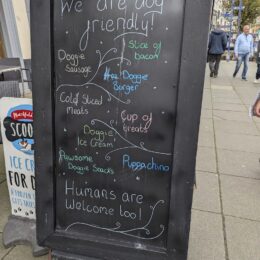 We are dog
friendly!
Slice of
bacon
Doggie
Sausage
Hot Doggie
Burger
Cold Sliced
Meats
Cup of
treats
Doggie
Ice Cream
Pawsome
Doggie Snacks
Puppachino
Humans are
Welcome too!
SCOO
ICE CRE
FOR D